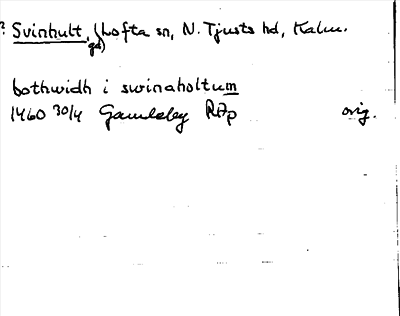 ? Svinhult, (Lofta sn, N. Tjusts hd, Kalm.
gd)
bothwidh i swinaholtum
1460 30/4 Gamleby RAp orig.